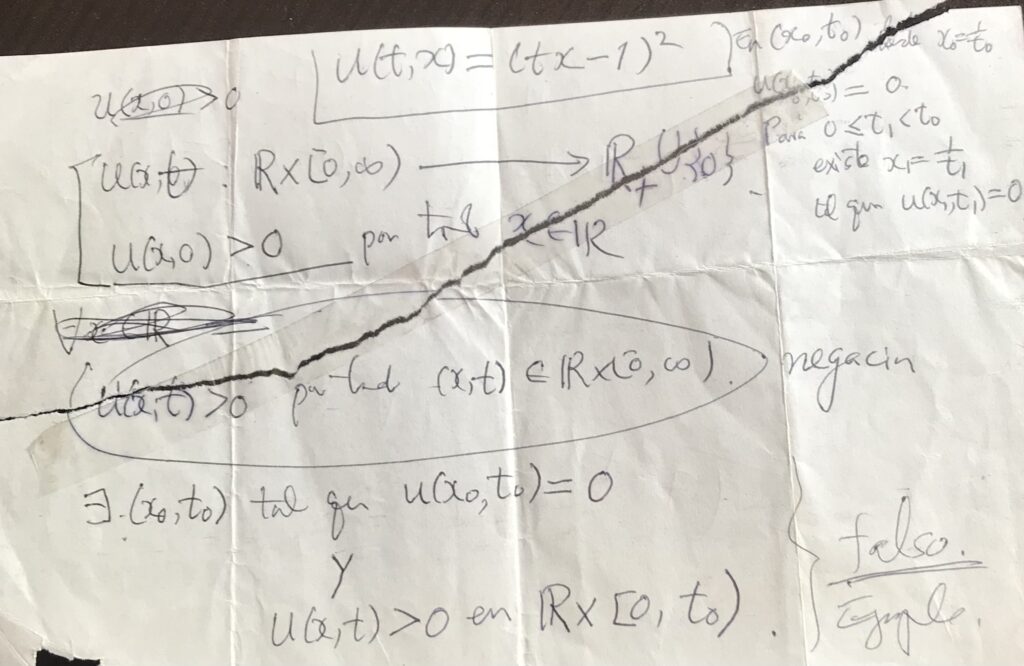 U(t,x) = (tx-1)²
En (x₀,t₀) donde x₀ = 1/t₀
u(x₀,t₀) = 0.
Para 0 ≤ t₁ < t₀
existe x₁ = 1/t₁
tal que u(x₁,t₁)=0
u(x,0) > 0
u(x,t) : ℝ×[0,∞) ⟶ ℝ₊ ∪ {0}
u(x,0) > 0 para x ∈ ℝ
u(x,t) > 0 para (x,t) ∈ ℝ×[0,∞). negación
∃.(x₀,t₀) tal que u(x₀,t₀) = 0
y
u(x,t) > 0 en ℝ×[0,t₀).
falso.
Ejemplo.